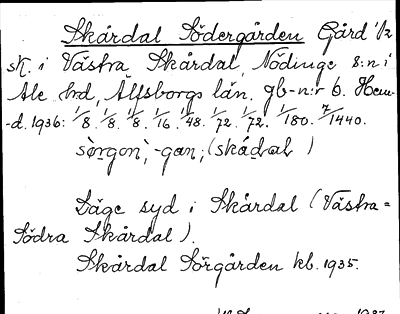 Skårdal Södergården Gård 1/2
sk. i Västra Skårdal, Nödinge s:n i
Ale hrd, Älfsborgs län. gb-n:r 6. Hem-
-d. 1936: 1/8. 1/8. 1/8. 1/16. 1/48. 1/72. 1/72. 1/180. 7/1440.
sörgon, -gan, (skådal)
Läge syd i Skårdal (Västra =
Södra Skårdal).
Skårdal Sörgården kb. 1935.